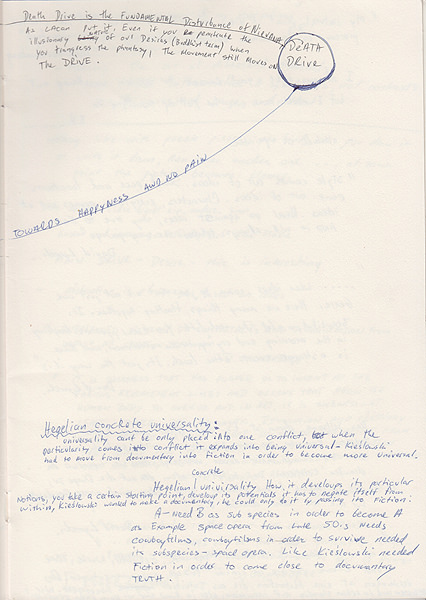 Death Drive is the FUNDAMENTAL Disturbance of Nirvana
As LACan put it, Even if you penetrate the
illusionary NATURE of our Desires (Buddhist term) when
you transgress the phantasy, The Movement still Moves on
The DRIVE.
DEATH
DRive
TOWARDS HAPPYNESS AND NO PAIN
Hegelian concrete universality:
universality cant be only placed into one conflict, when the
particularity comes into conflict it expands into being universal - Kieślowski
had to move from documentary into fiction in order to become more universal.
concrete
Hegelian universality How it develops its particular
Notions, you take a certain starting point, develop its potentials it has to negate itself from
within, Kieślowski wanted to make a documentary he could only do it by passing into Fiction:
A - Need B as sub species in order to become A
as Example space opera from 50.s Needs
cowboyfilms, cowboyfilms in order to survive needed
its subspecies - space opera. Like Kieślowski needed
Fiction in order to come close to documentary
TRUTH.